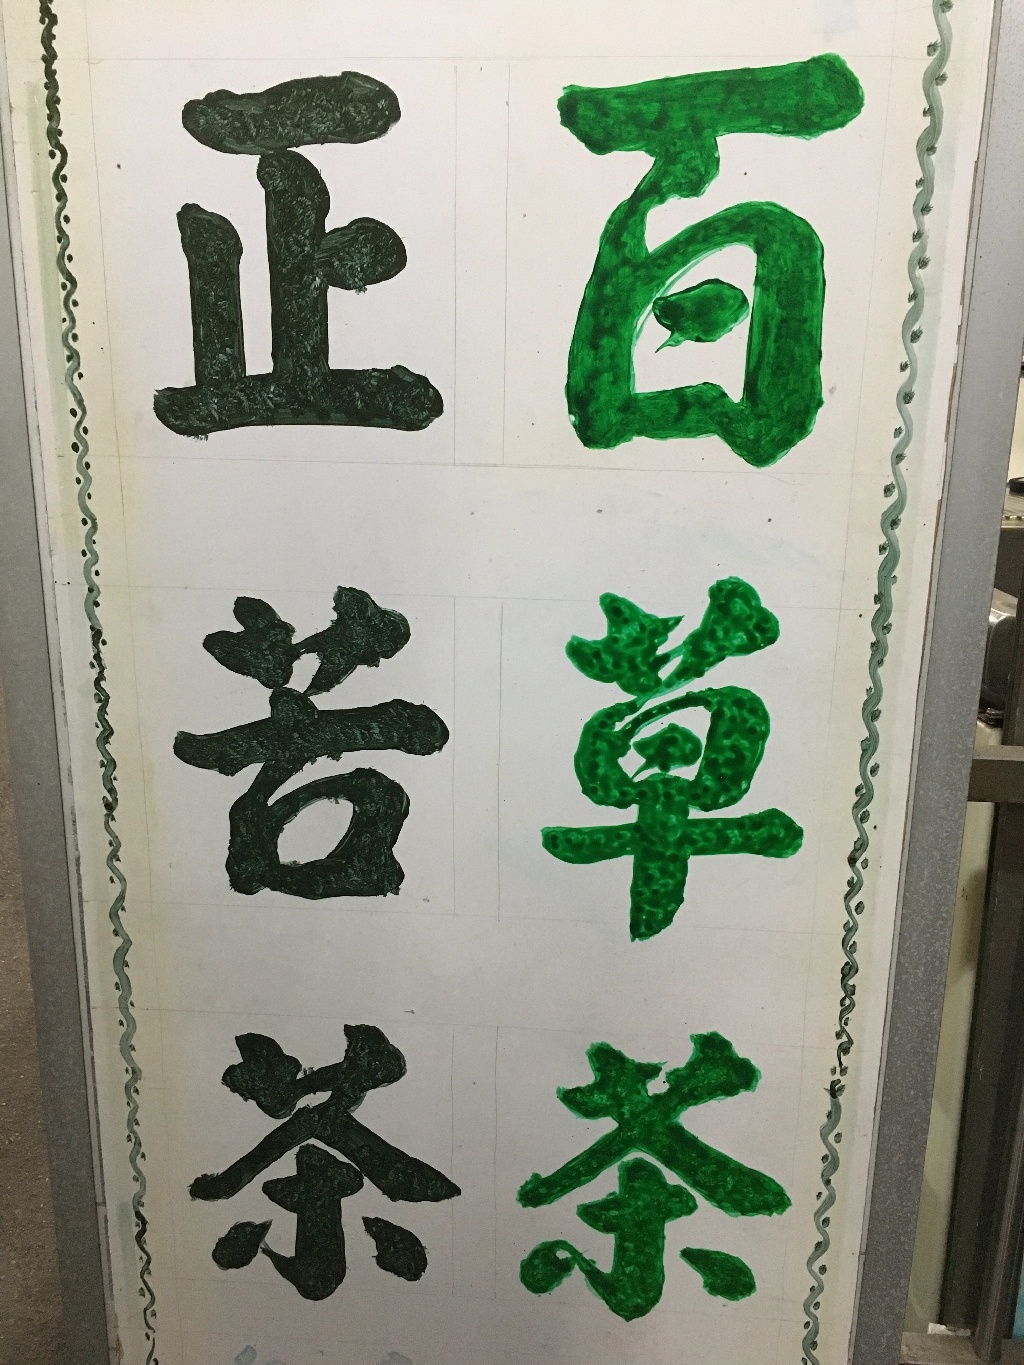 百草茶
正苦茶